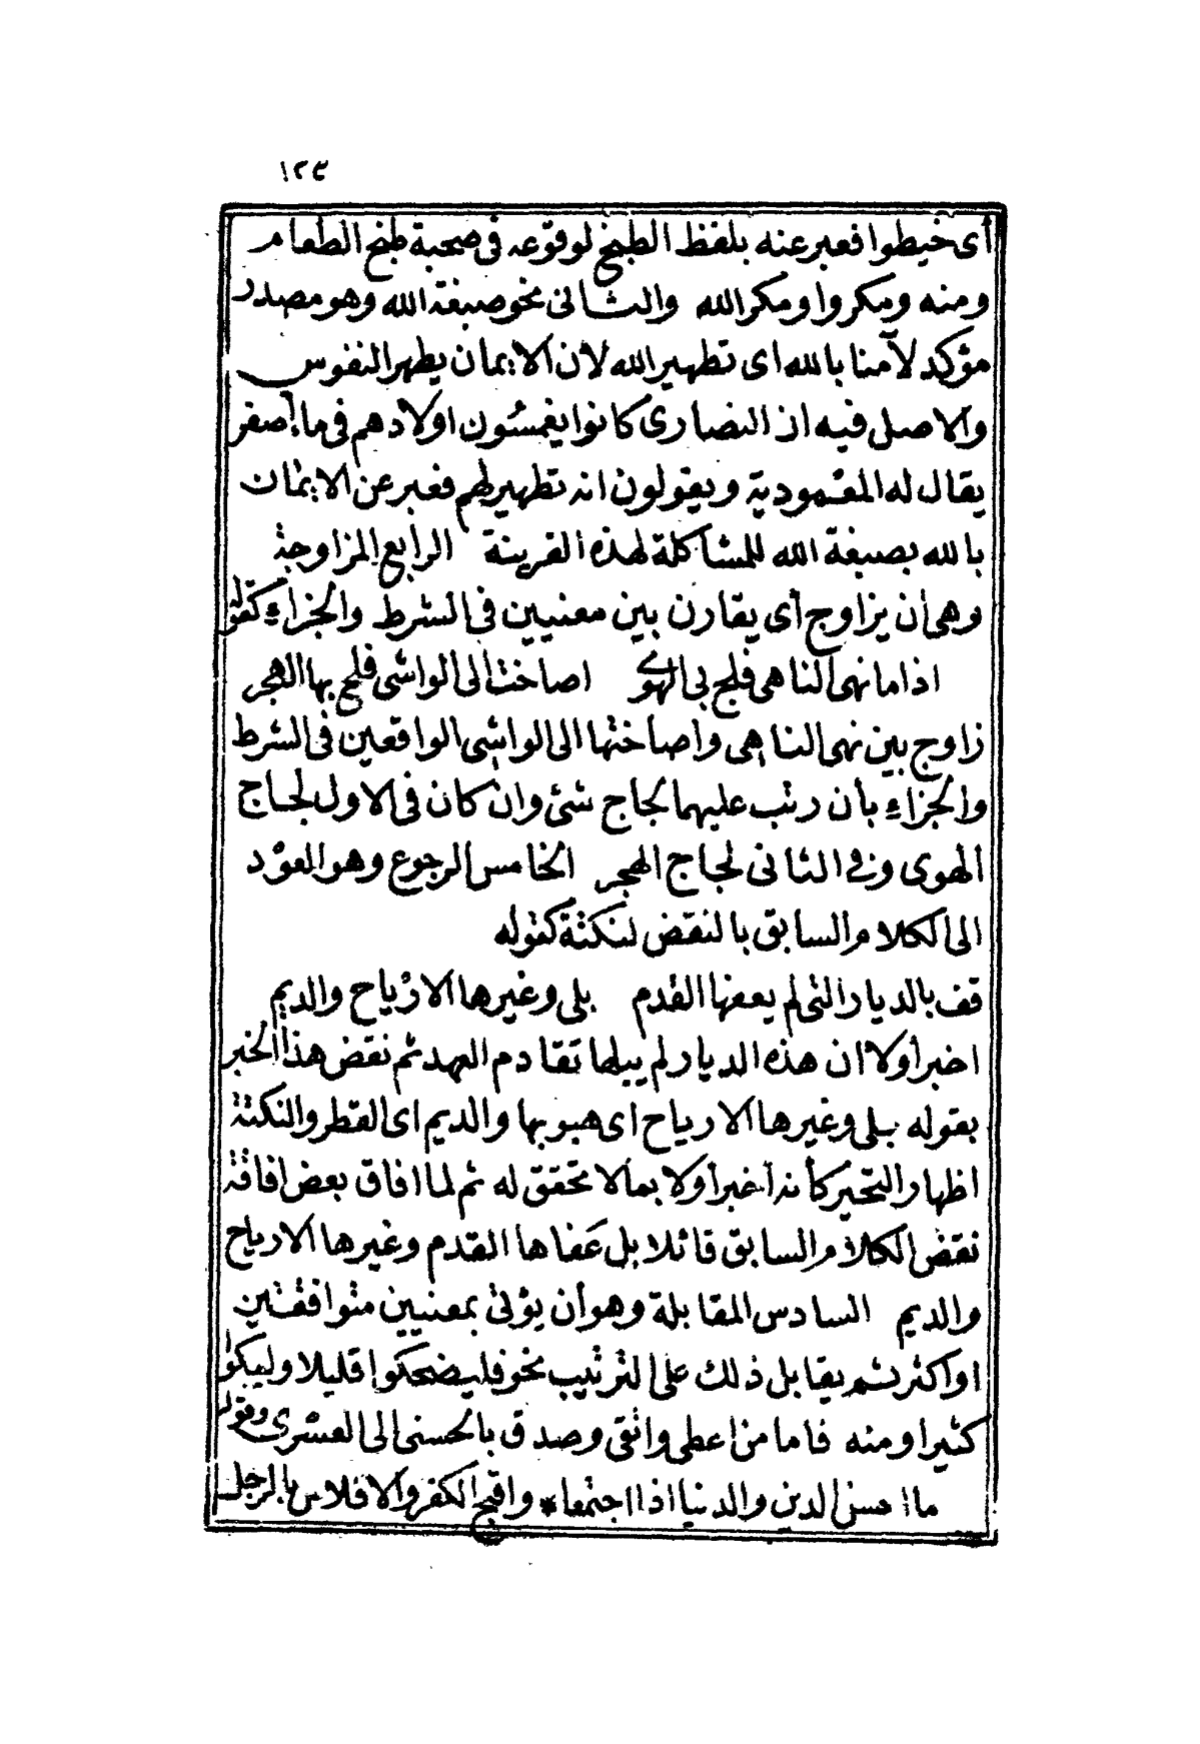 ١٢٣
أى خيطوا فعبر عنه بلفظ الطبخ لوقوعه فى صحبة طبخ الطعام
ومنه ومكروا ومكر الله والثانى نحو صبغة الله وهو مصدر
مؤكد لآمنا بالله اى تطهير الله لان الايمان يطهر النفوس
والاصل فيه ان النصارى كانوا يغمسون اولادهم فى ماء أصفر
يقال له المعمودية ويقولون انه تطهير لهم فعبر عن الايمان
بالله بصبغة الله للمشاكلة لهذه القرينة الرابع المزاوجة
وهى أن يزاوج أى يقارن بين معنيين فى الشرط والجزاء كقوله
اذا ما نهى الناهى فلج بى الهوى اصاخت الى الواشى فلج بها الهجر
زاوج بين نهى الناهى واصاختها الى الواشى الواقعين فى الشرط
والجزاء بأن رتب عليهما لجاج شئ وان كان فى الاول لجاج
الهوى وفى الثانى لجاج الهجر الخامس الرجوع وهو العود
الى الكلام السابق بالنقض لنكتة كقوله
قف بالديار التى لم يعفها القدم بلى وغيرها الارياح والديم
اخبر أولا ان هذه الديار لم يبلها تقادم العهد ثم نقض هذا الخبر
بقوله بلى وغيرها الارياح اى هبوبها والديم اى القطر والنكتة
اظهار التحير كأنه أخبر أولا بما لا تحقق له ثم لما افاق بعض افاقة
نقض الكلام السابق قائلا بل عفاها القدم وغيرها الارياح
والديم السادس المقابلة وهو أن يؤتى بمعنيين متوافقين
او اكثر ثم يقابل ذلك على الترتيب نحو فليضحكوا قليلا وليبكوا
كثيرا ومنه فاما من اعطى واتقى وصدق بالحسنى الى العسرى وقوله
ما احسن الدين والدنيا اذا اجتمعا * واقبح الكفر والافلاس بالرجل